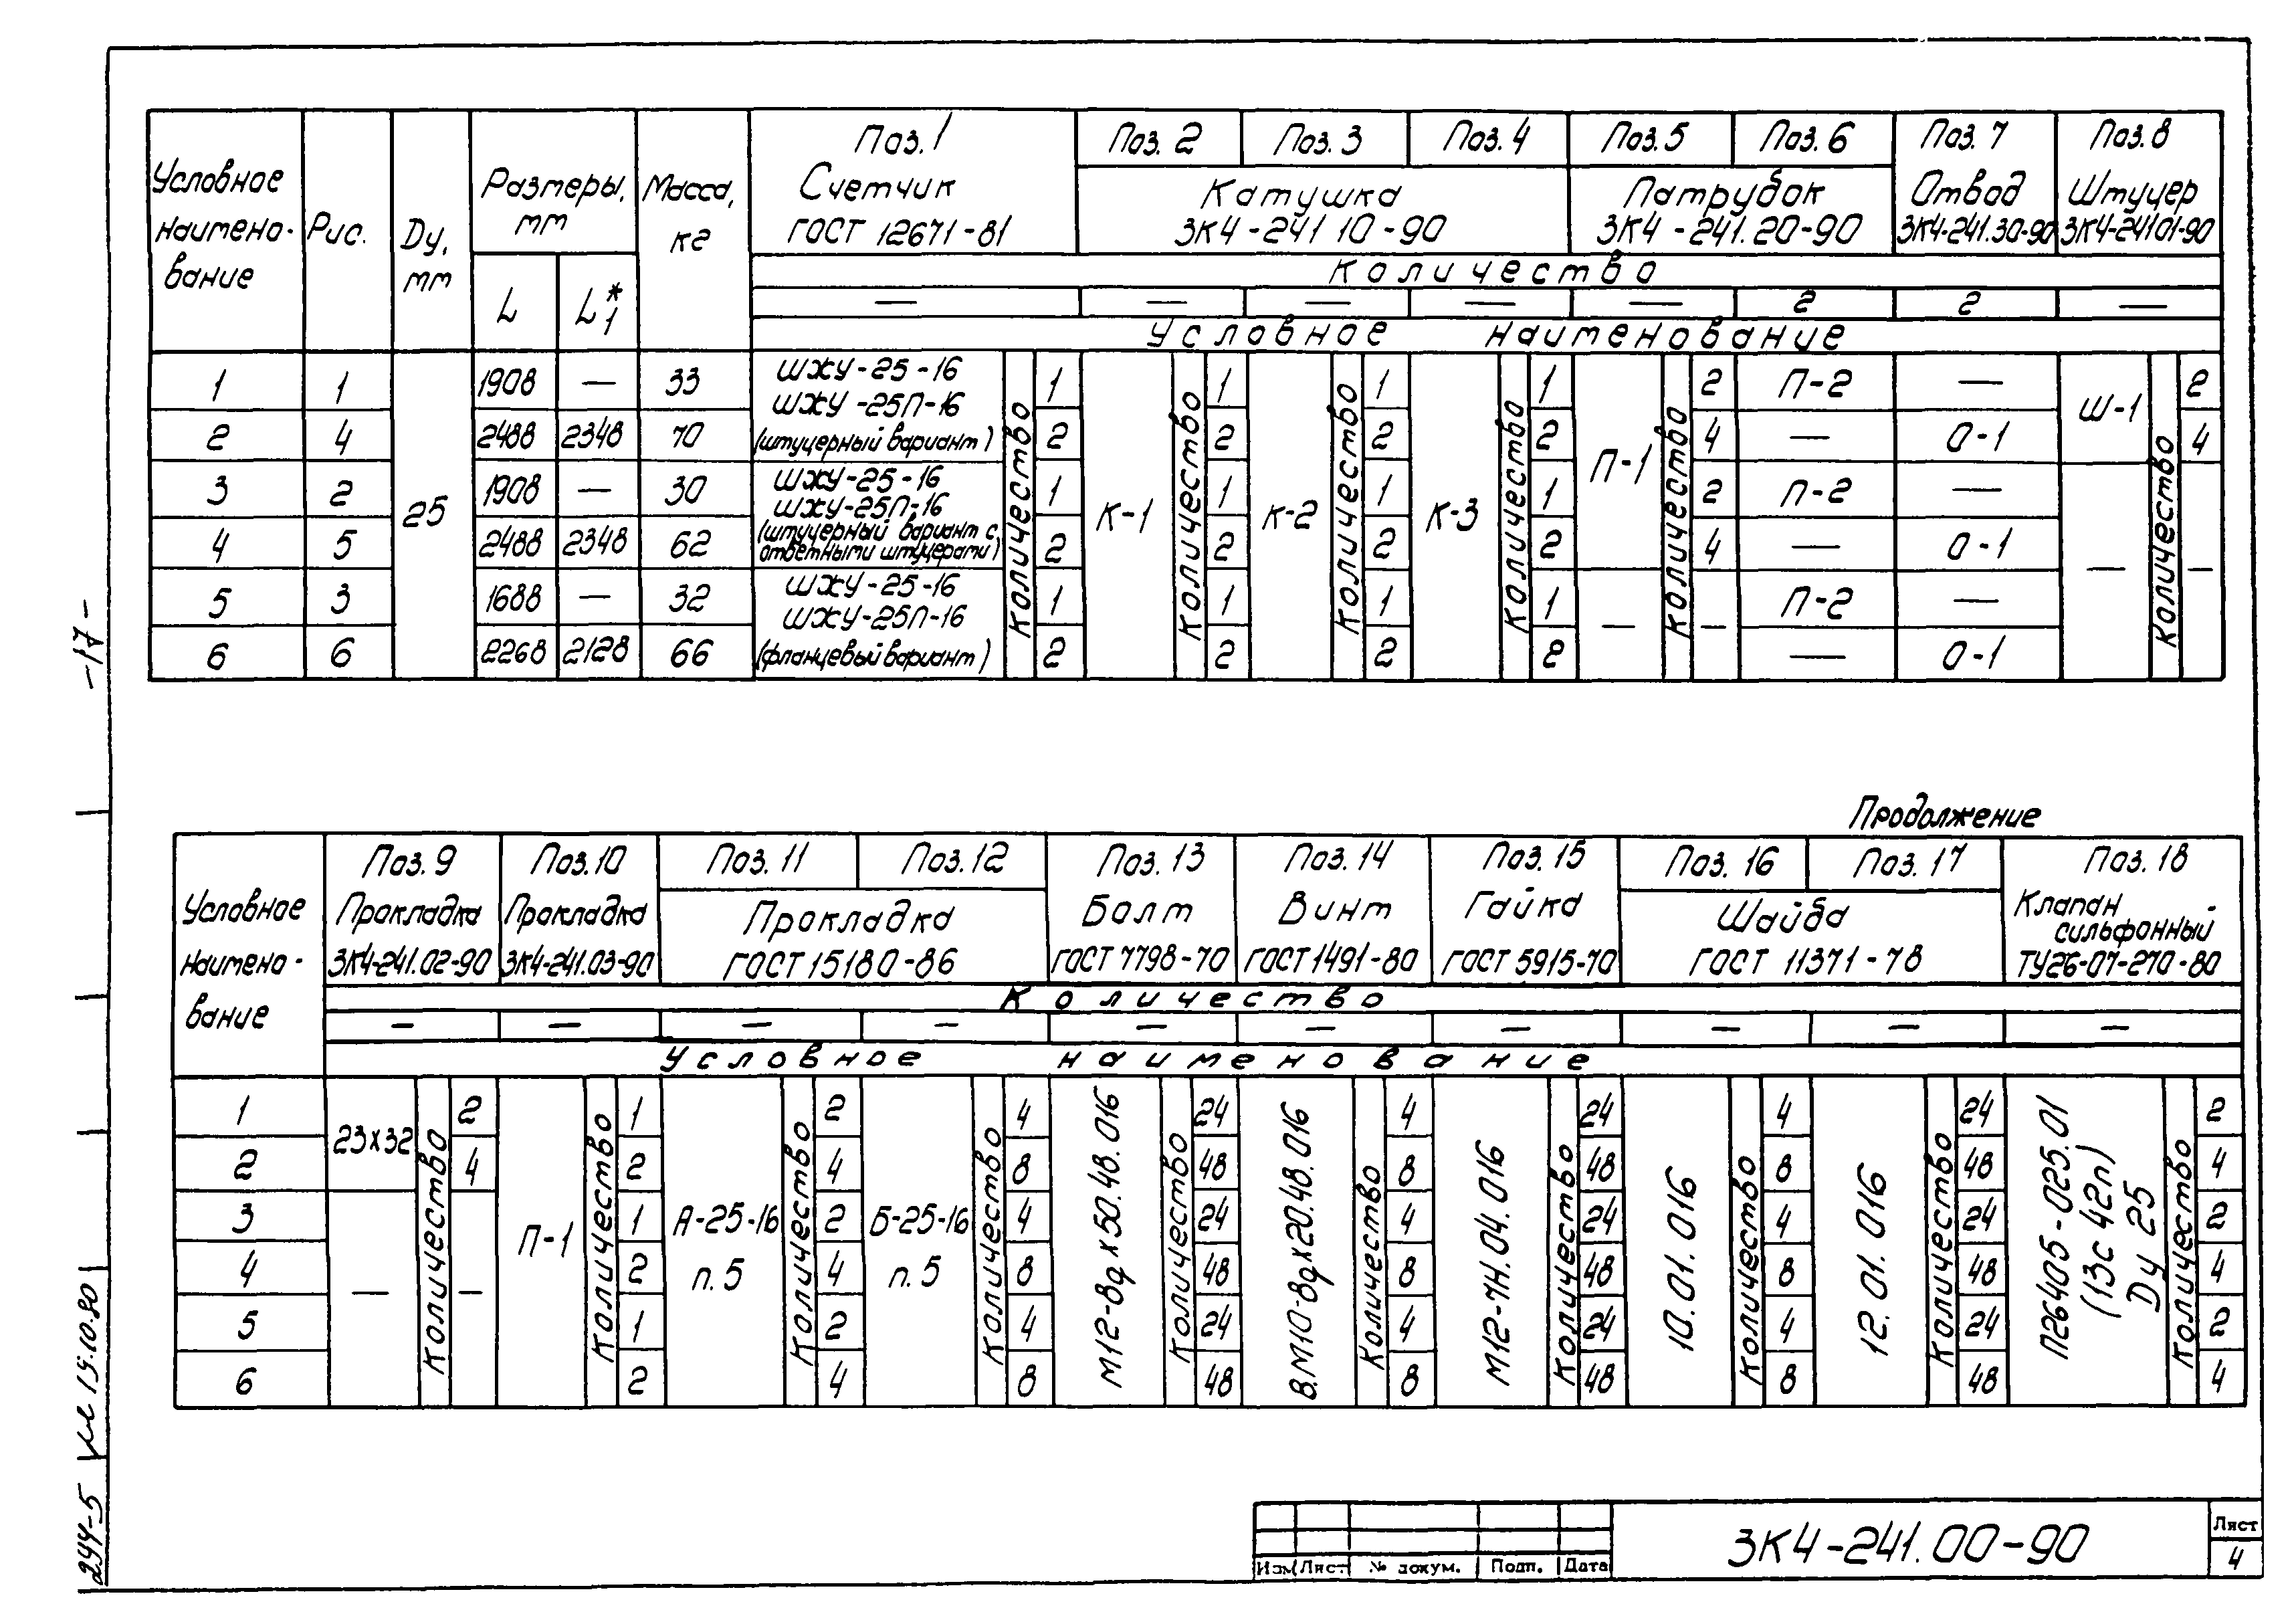 Поз. 1 Поз. 2 Поз. 3 Поз. 4 Поз. 5 Поз. 6 Поз. 7 Поз. 8
Условное наимено- вание
Рис.
Dу, мм
Размеры, мм
L L1*
Масса, кг
Счетчик ГОСТ 12671-81
Катушка ЗК4-241 10-90
Патрубок ЗК4-241.20-90
Отвод ЗК4-241.30-90
Штуцер ЗК4-24101-90
Количество
— — — — — 2 2 —
Условное наименование
1 1 1908 — 33 1 1 1 1 2 П-2 — 2
2 4 2488 2348 70 2 2 2 2 4 — О-1 4
3 2 1908 — 30 1 1 1 1 2 П-2 —
4 5 2488 2348 62 2 2 2 2 4 — О-1
5 3 1688 — 32 1 1 1 1 П-2 —
6 6 2268 2128 66 2 2 2 2 — О-1
25
ШЖУ-25-16
ШЖУ-25П-16
(штуцерный вариант)
ШЖУ-25-16
ШЖУ-25П-16
(штуцерный вариант с
ответными штуцерами)
ШЖУ-25-16
ШЖУ-25П-16
(фланцевый вариант)
Количество
К-1 Количество
К-2 Количество
К-3 Количество
П-1 — Количество —
Ш-1 — Количество —
-17-
Продолжение
Условное наимено- вание
Поз. 9 Поз. 10 Поз. 11 Поз. 12 Поз. 13 Поз. 14 Поз. 15 Поз. 16 Поз. 17 Поз. 18
Прокладка ЗК4-241.02-90
Прокладка ЗК4-241.03-90
Прокладка ГОСТ 15180-86
Болт ГОСТ 7798-70
Винт ГОСТ 1491-80
Гайка ГОСТ 5915-70
Шайба ГОСТ 11371-78
Клапан сильфонный ТУ26-07-270-80
Количество
— — — — — — — — — —
Условное наименование
1 2 1 2 4 24 4 24 4 24 2
2 4 2 4 8 48 8 48 8 48 4
3 1 2 4 24 4 24 4 24 2
4 2 4 8 48 8 48 8 48 4
5 1 2 4 24 4 24 4 24 2
6 2 4 8 48 8 48 8 48 4
23х32 — Количество —
П-1 Количество
А-25-16 п. 5 Количество
Б-25-16 п. 5 Количество
М12-8gх50.48.016 Количество
В.М10-8gх20.48.016 Количество
М12-7Н.04.016 Количество
10.01.016 Количество
12.01.016 Количество
П26405-025.01
(13с 42п)
Dу 25
Количество
244-5
15.10.80
Изм Лист № докум. Подп. Дата
ЗК4-241.00-90
Лист
4